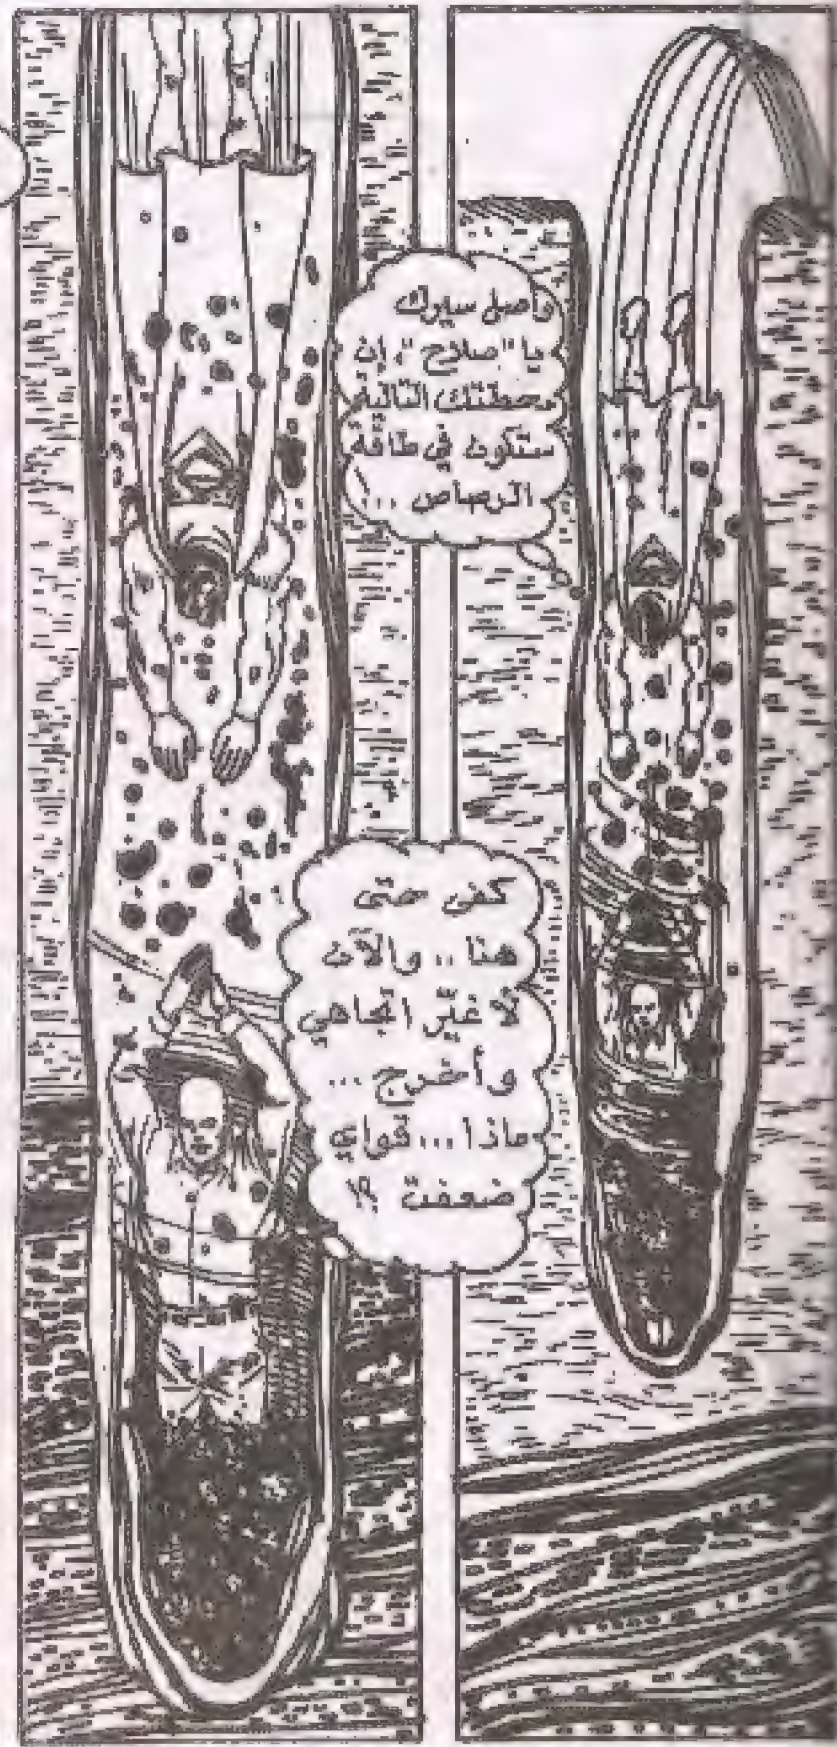 واصل سيرك
يا "صلاح"، إن
محطتك التالية
ستكون في طاقة
الرصاص ...
كفى حتى
هنا .. والآن
لأغيّر اتجاهي
وأخرج ...
ماذا ... قواي
ضعفت ؟!